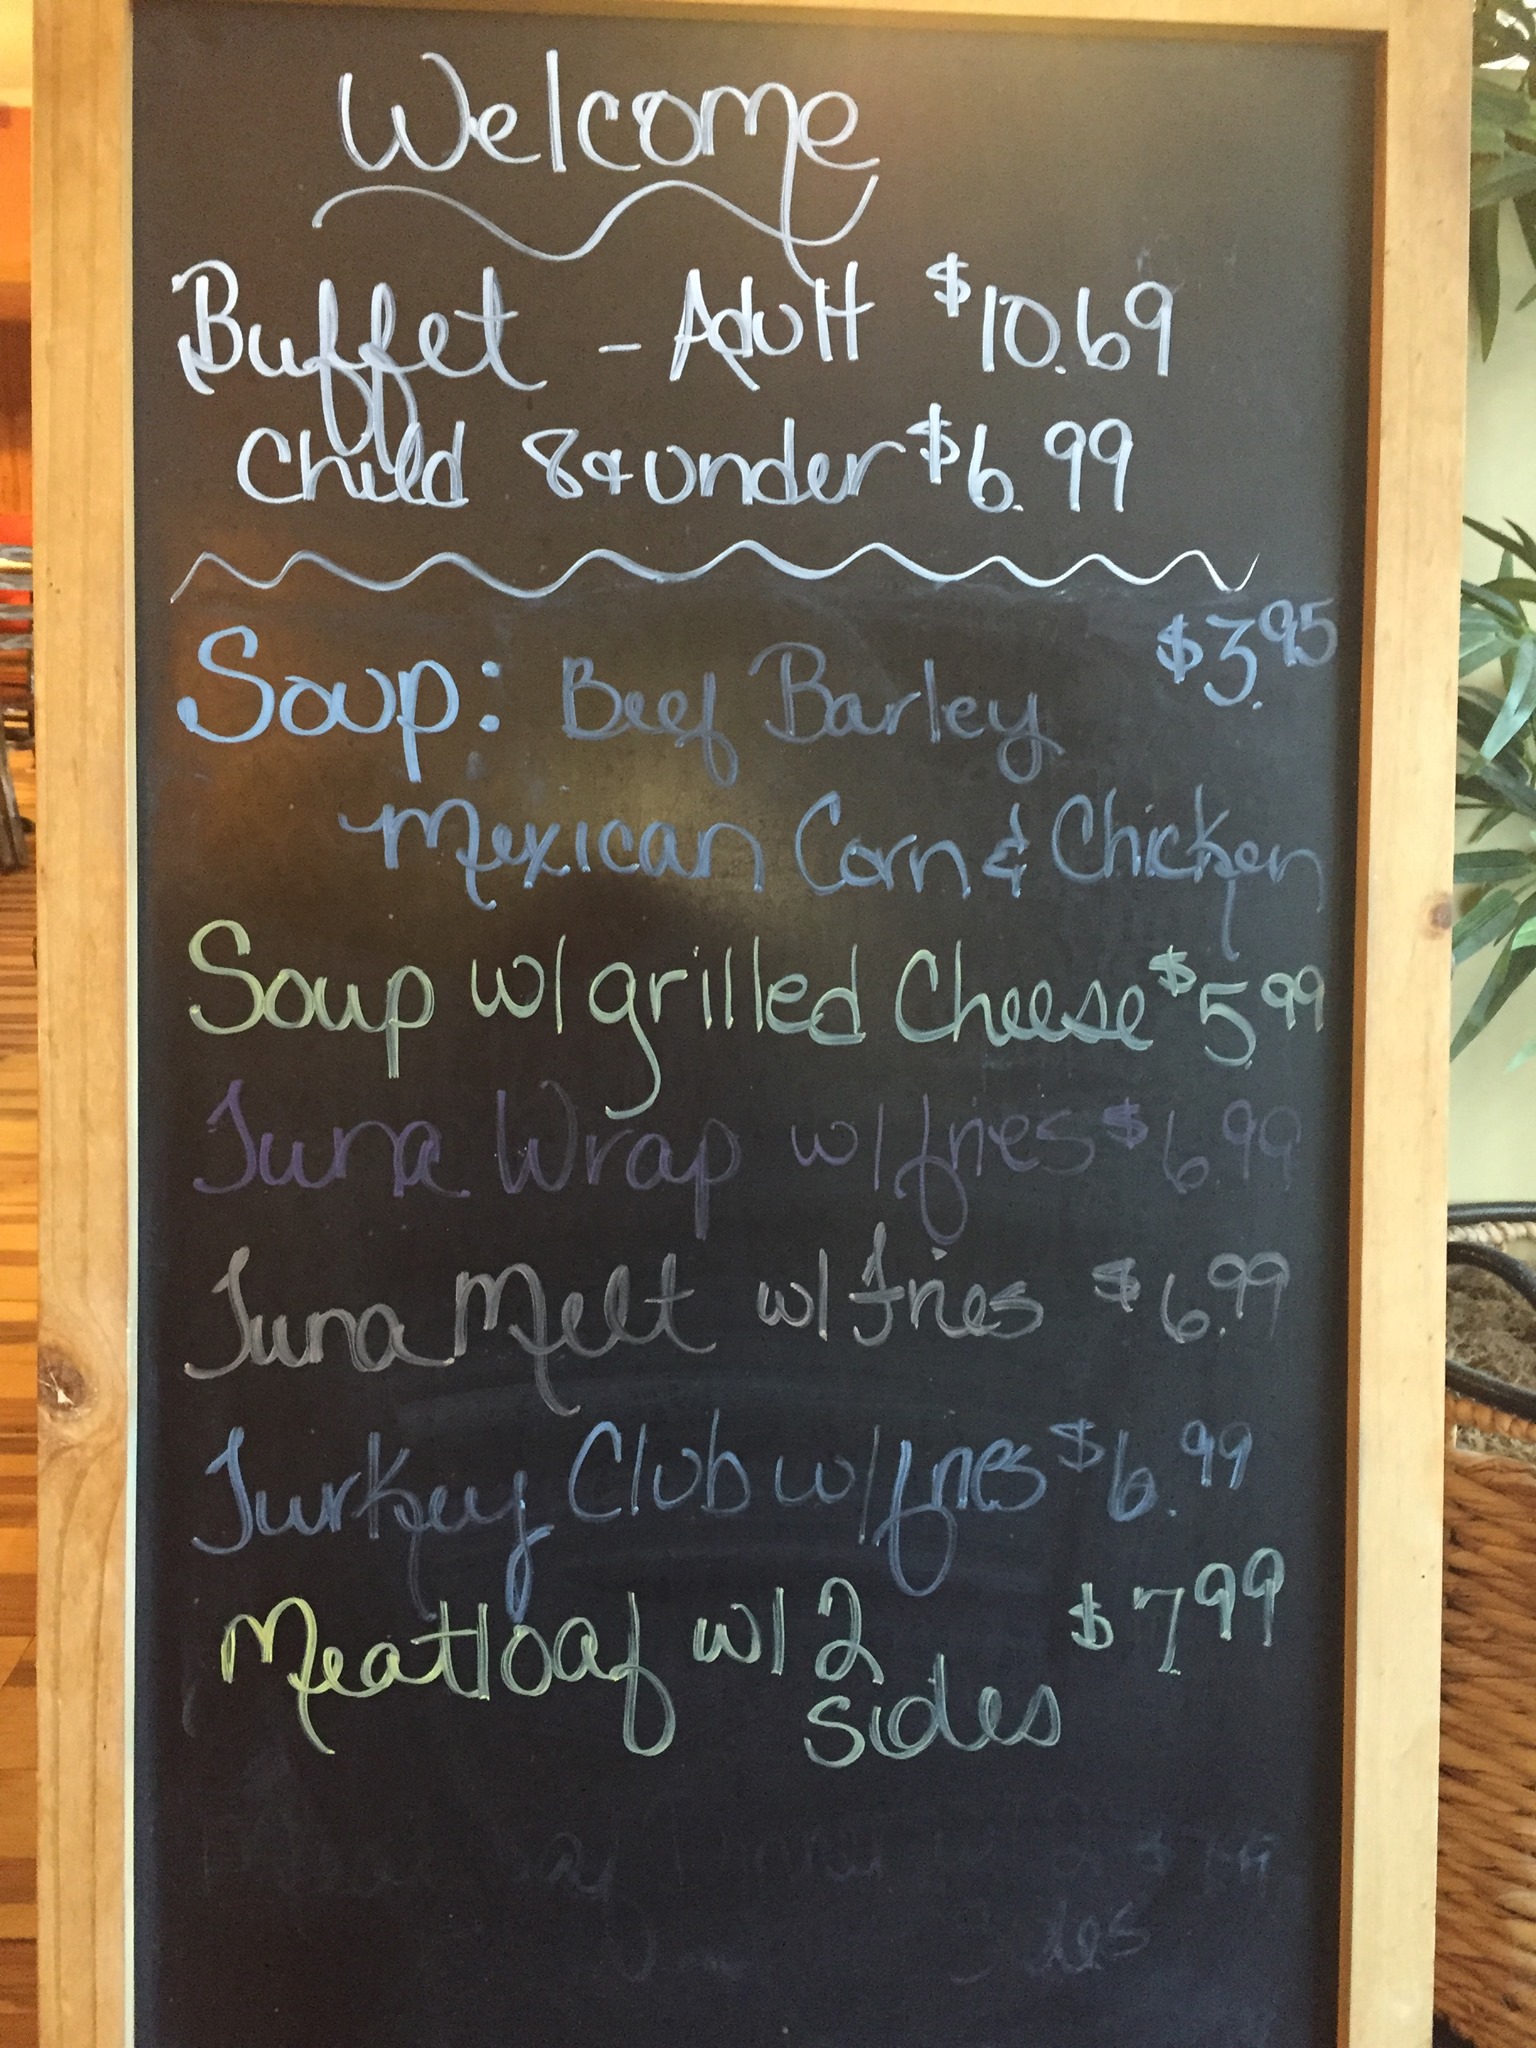 Welcome
Buffet - Adult $10.69
Child 8 & under $6.99
Soup: Beef Barley $3.95
Mexican Corn & Chicken
Soup w/ grilled Cheese $5.99
Tuna Wrap w/ fries $6.99
Tuna Melt w/ Fries $6.99
Turkey Club w/ fries $6.99
Meatloaf w/ 2 $7.99
sides